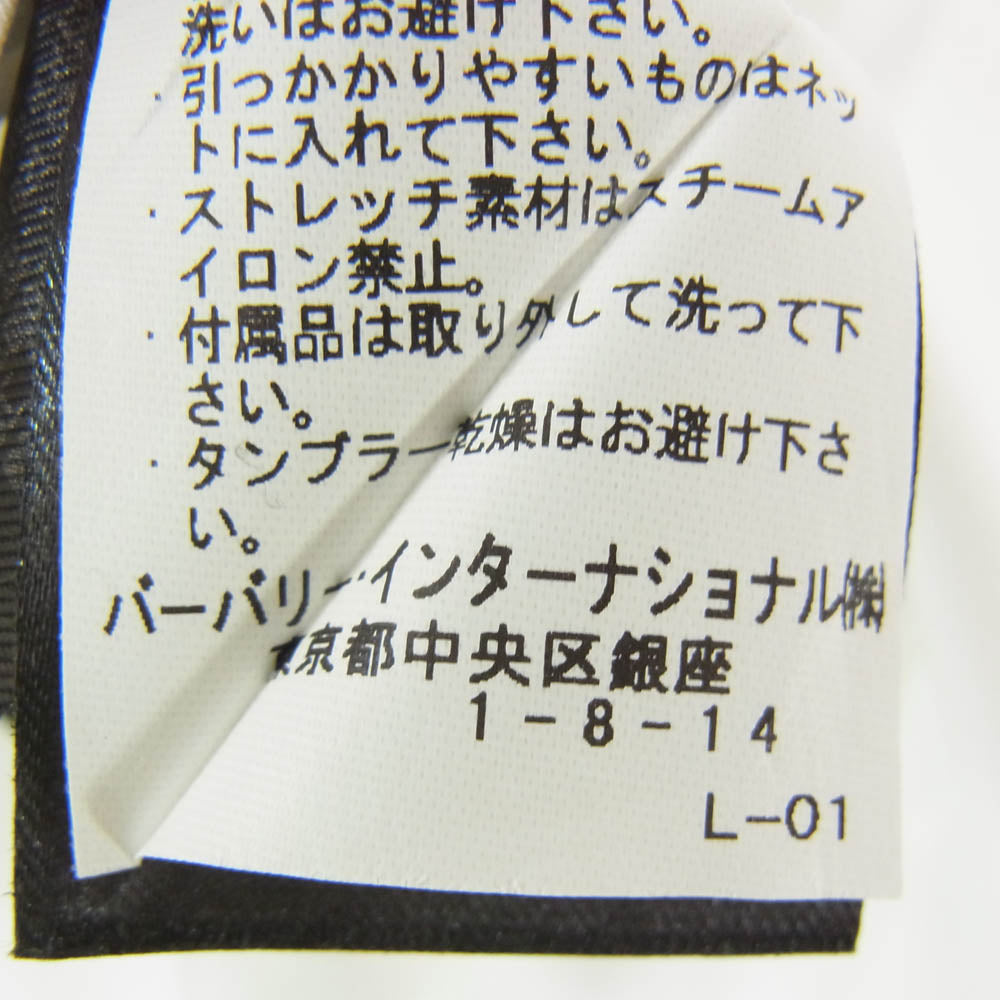 洗いはお避け下さい。
・引っかかりやすいものはネッ
トに入れて下さい。
・ストレッチ素材はスチームア
イロン禁止。
・付属品は取り外して洗って下
さい。
・タンブラー乾燥はお避け下さ
い。
バーバリー・インターナショナル㈱
東京都中央区銀座
1-8-14
L-01